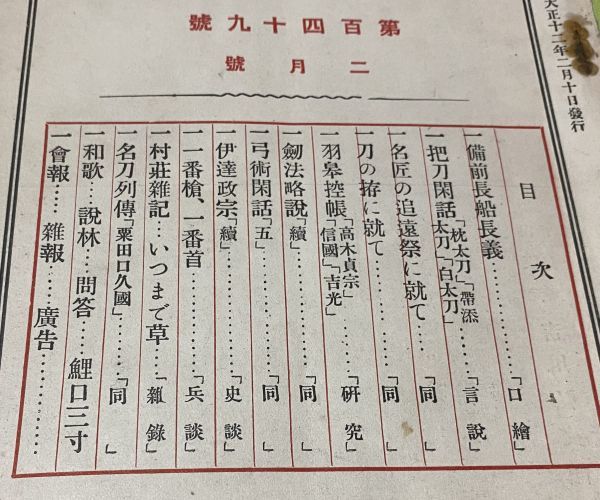 大正十二年二月十日發行
第百四十九號
二月號
目次
一備前長船長義………「口繪」
一把刀閑話「枕太刀」「帶添太刀」「白太刀」…「言說」
一名匠の追遠祭に就て……「同」
一刀の拵に就て…………「同」
一羽皐控帳「高木貞宗」「信國」「吉光」……「硏究」
一劒法略說「續」………「同」
一弓術閑話「五」………「同」
一伊達政宗「續」………「史談」
一一番槍、一番首………「兵談」
一村莊雜記…いつまで草…「雜錄」
一名刀列傳「粟田口久國」……「同」
一和歌…說林…問答…鯉口三寸
一會報……雜報……廣告…………